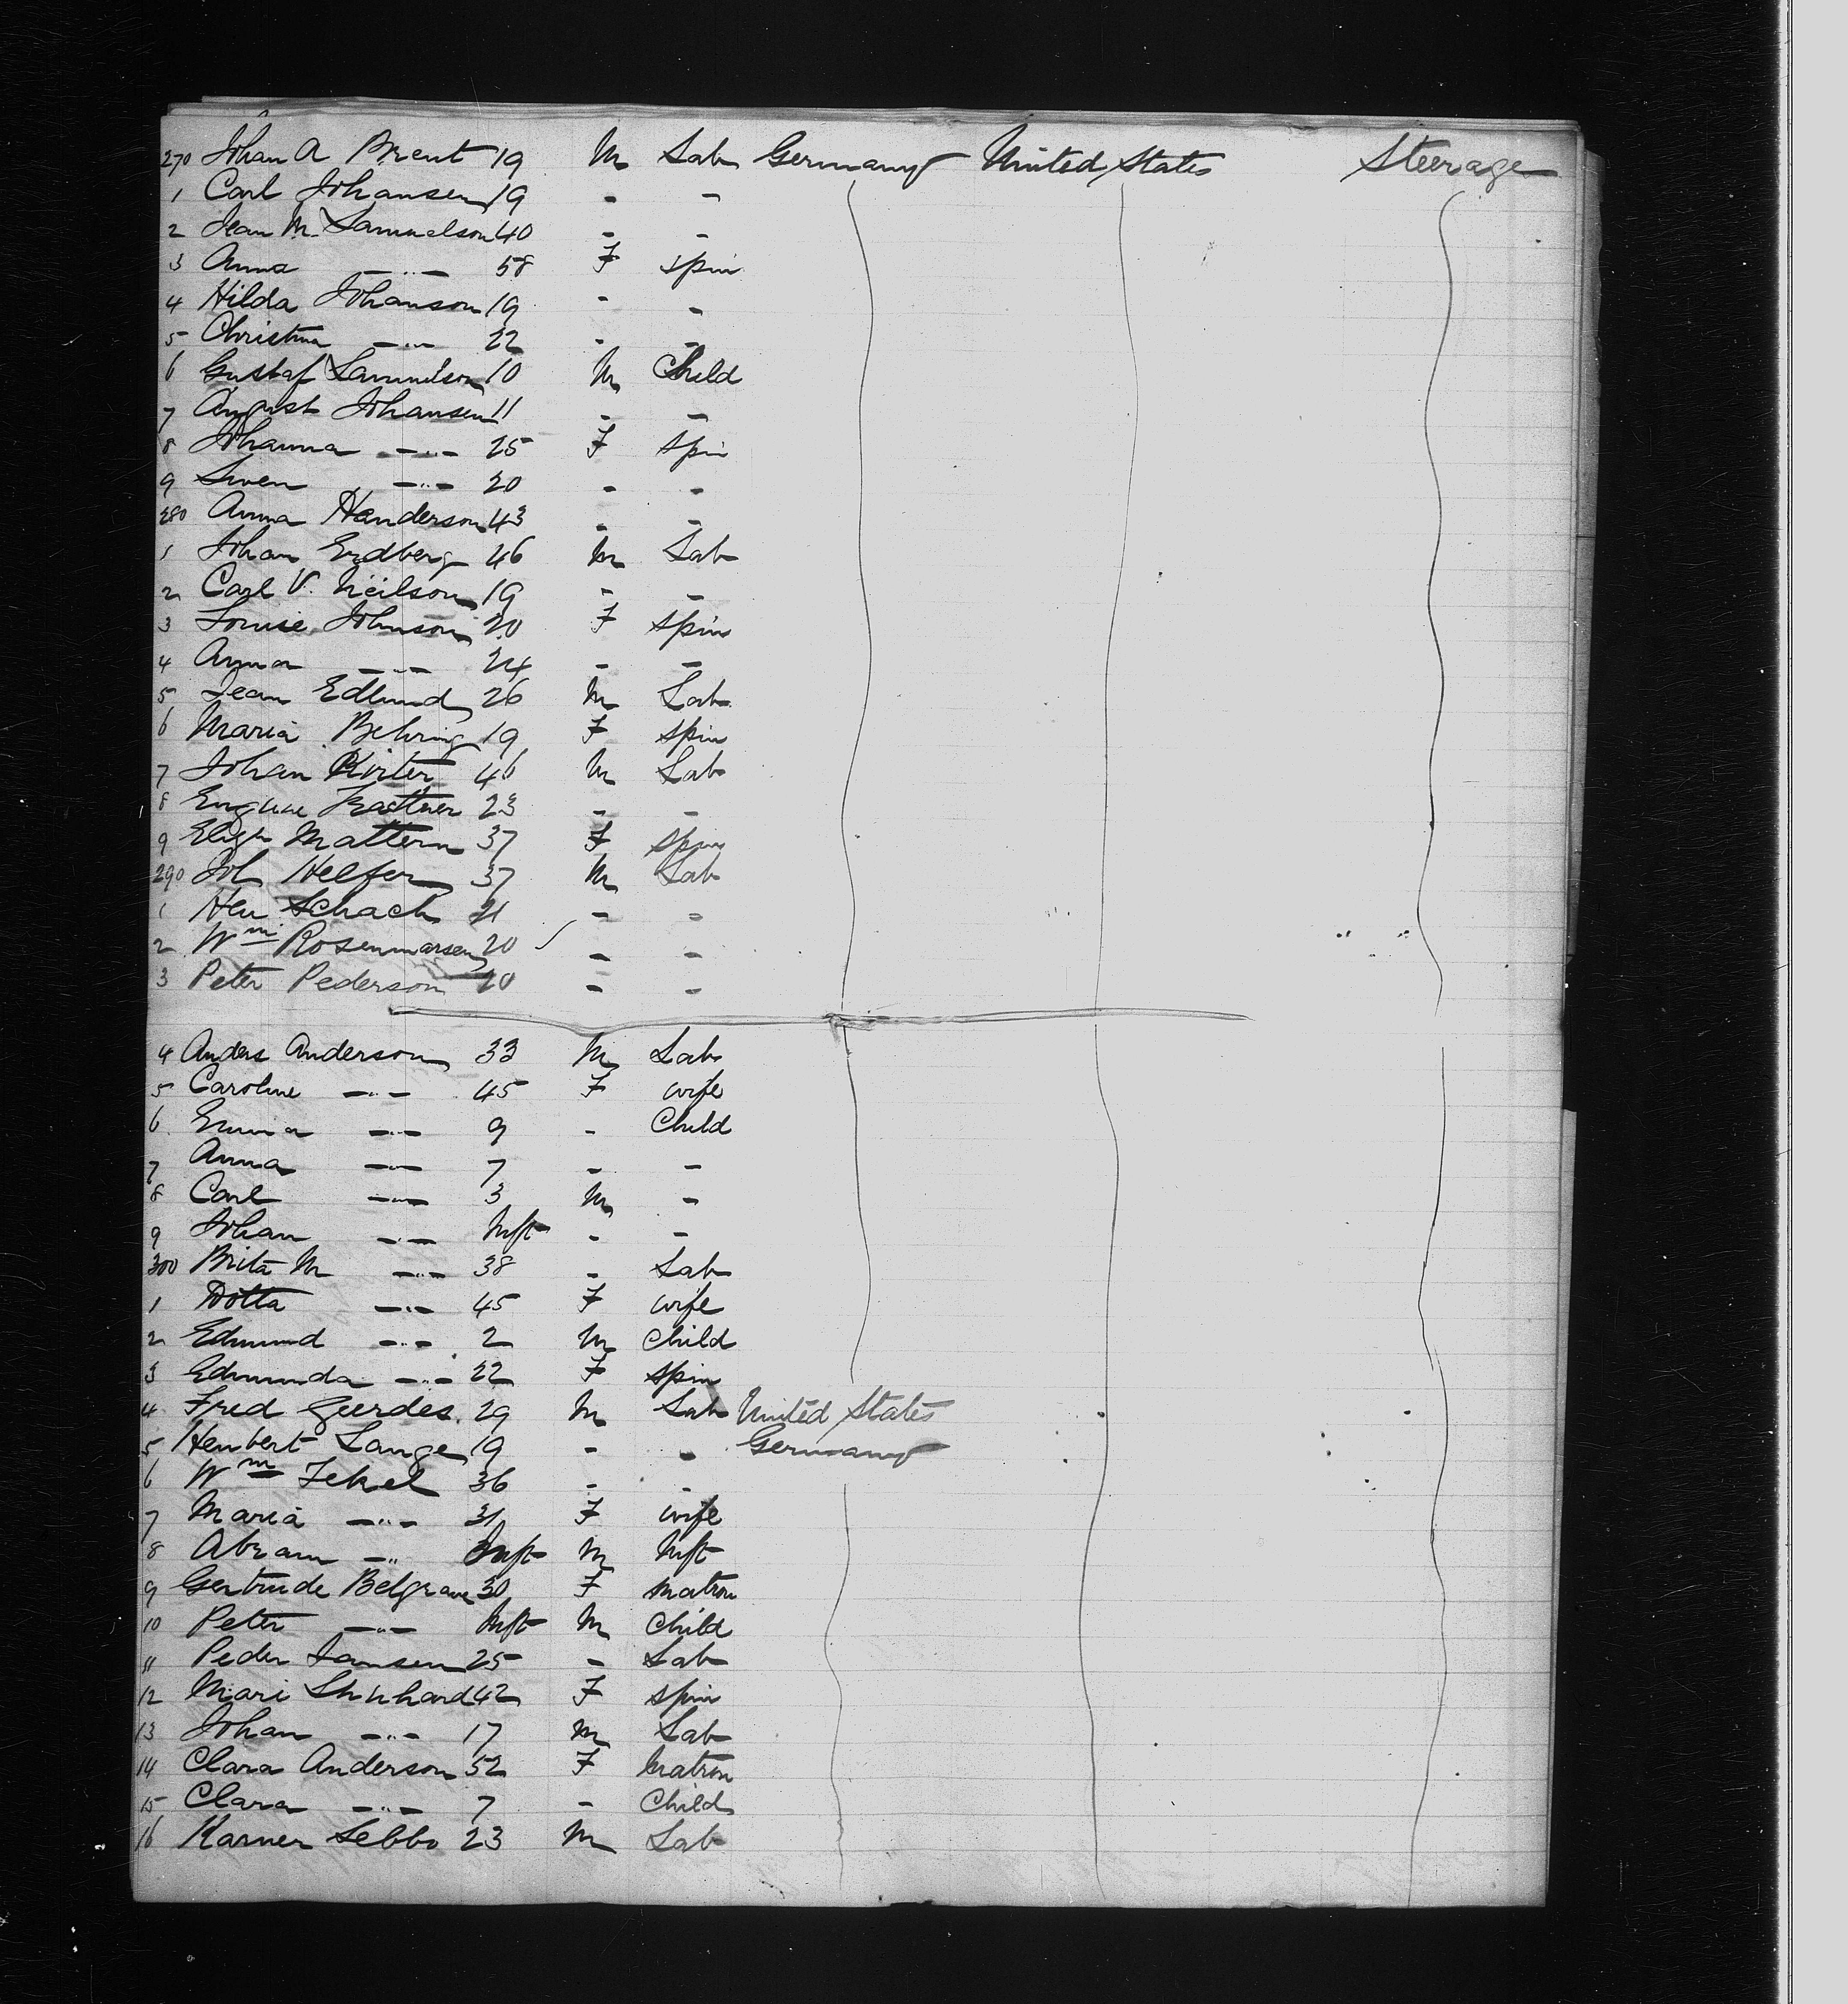 270 Johan A Brent 19 M Lab Germany United States Steerage
1 Carl Johansen 19 - -
2 Jean M. Samuelson 40 - -
3 Anna -"- 58 F spin
4 Hilda Johanson 19 - -
5 Christina -"- 22 - -
6 Gustaf Samuelson 10 M Child
7 August Johansen 11 - -
8 Johanna -"- 25 F spin
9 Swen -"- 20 - -
280 Anna Handerson 43 - -
1 Johan Erdberg 46 M Lab
2 Carl V. Neilson 19 - -
3 Louise Johnson 20 F spin
4 Anna -"- 24 - -
5 Jean Edlund 26 M Lab
6 Maria Behring 19 F spin
7 Johan 46 M Lab
8 Eugene 23 - -
9 Eliza Mattern 37 F spin
290 Joh Helfer 37 M Lab
1 Hen Schach 21 - -
2 Wm Rosenmarsen 20 - -
3 Peter Pederson 20 - -
4 Anders Anderson 33 M Lab
5 Caroline -"- 45 F wife
6 Emma -"- 9 - Child
7 Anna -"- 7 - -
8 Carl -"- 3 M -
9 Johan -"- Inft - -
300 Brita M -"- 38 - Lab
1 Dotta -"- 45 F wife
2 Edmund -"- 2 M Child
3 Edmunda -"- 22 F spin
4 Fred Gerdes 29 M Lab United States
5 Henbert Lange 19 - - Germany
6 Wm Jekel 36 - -
7 Maria -"- 31 F wife
8 Abram -"- Inft M Inft
9 Gertrude Belgrave 30 F matron
10 Peter -"- Inft M Child
11 Peder Jansen 25 - Lab
12 Mari 42 F spin
13 Johan -"- 17 M Lab
14 Clara Anderson 52 F Matron
15 Clara -"- 7 - Child
16 Karner Sebbo 23 M Lab